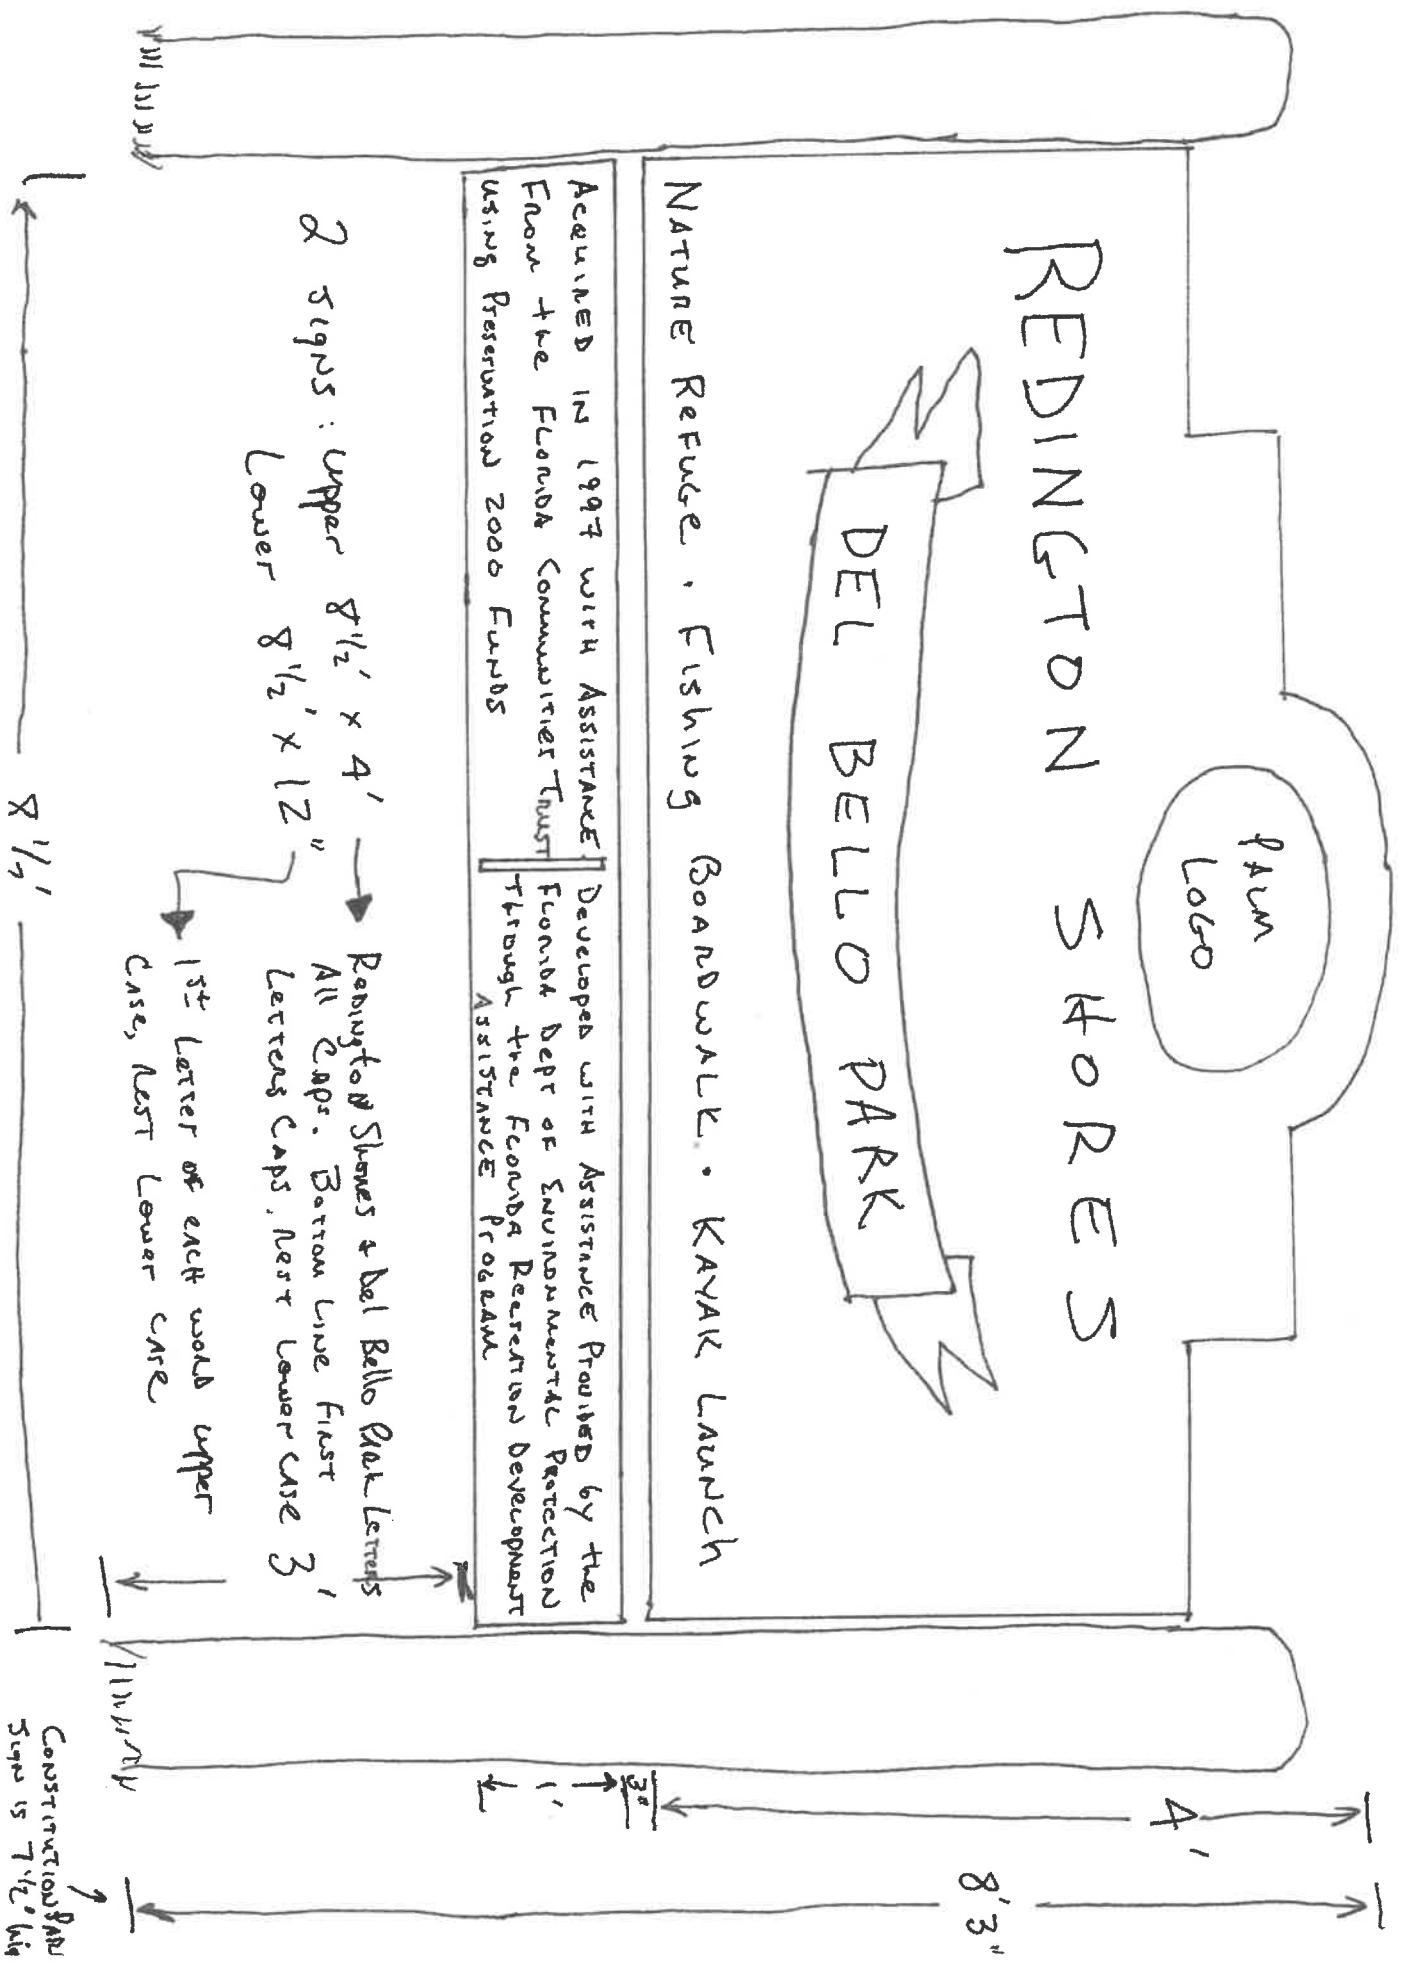 PALM
LOGO
REDINGTON SHORES
DEL BELLO PARK
NATURE REFUGE . FIShING BOARDWALK . KAYAK LAUNCh
4'
8'3"
3"
1'
Acquired IN 1997 with Assistance
From the FLORIDA Communities Trust
using Preservation 2000 FUNDS
Developed with Assistance Provided by the
FLORIDA Dept of Environmental Protection
Through the Florida Recreation Development
Assistance Program
2 signs: upper 8 1/2' x 4'
Lower 8 1/2' x 12"
Redington Shores & Del Bello Park Letters
All Caps. Bottom Line First
Letters Caps, Rest Lower case
1st Letter of each word upper
Case, Rest Lower case
3'
8 1/2'
Constitution Park
Sign is 7 1/2' hig